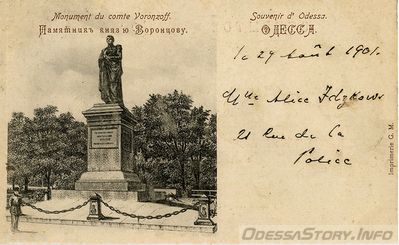 Monument du comte Voronzoff.
Памятникъ князю Воронцову.
Souvenir d'Odessa.
ОДЕССА.
le 29 août 1901.
Mlle Alice
21 Rue de la
Police
Imprimerie G. M.
OdessaStory.Info